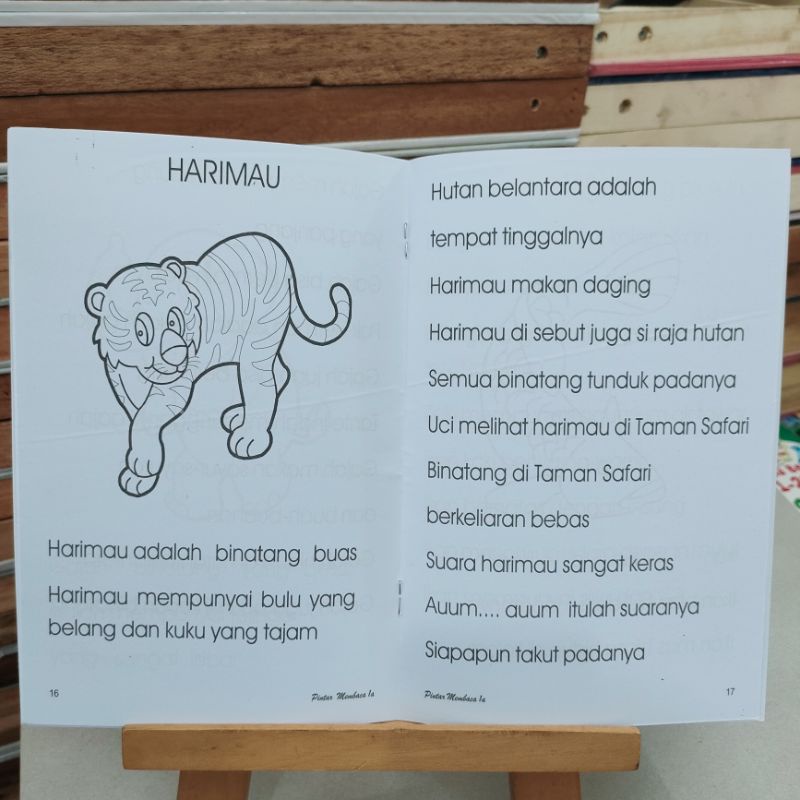 HARIMAU
Harimau adalah binatang buas
Harimau mempunyai bulu yang
belang dan kuku yang tajam
16
Pintar Membaca 1a
Hutan belantara adalah
tempat tinggalnya
Harimau makan daging
Harimau di sebut juga si raja hutan
Semua binatang tunduk padanya
Uci melihat harimau di Taman Safari
Binatang di Taman Safari
berkeliaran bebas
Suara harimau sangat keras
Auum.... auum itulah suaranya
Siapapun takut padanya
Pintar Membaca 1a
17